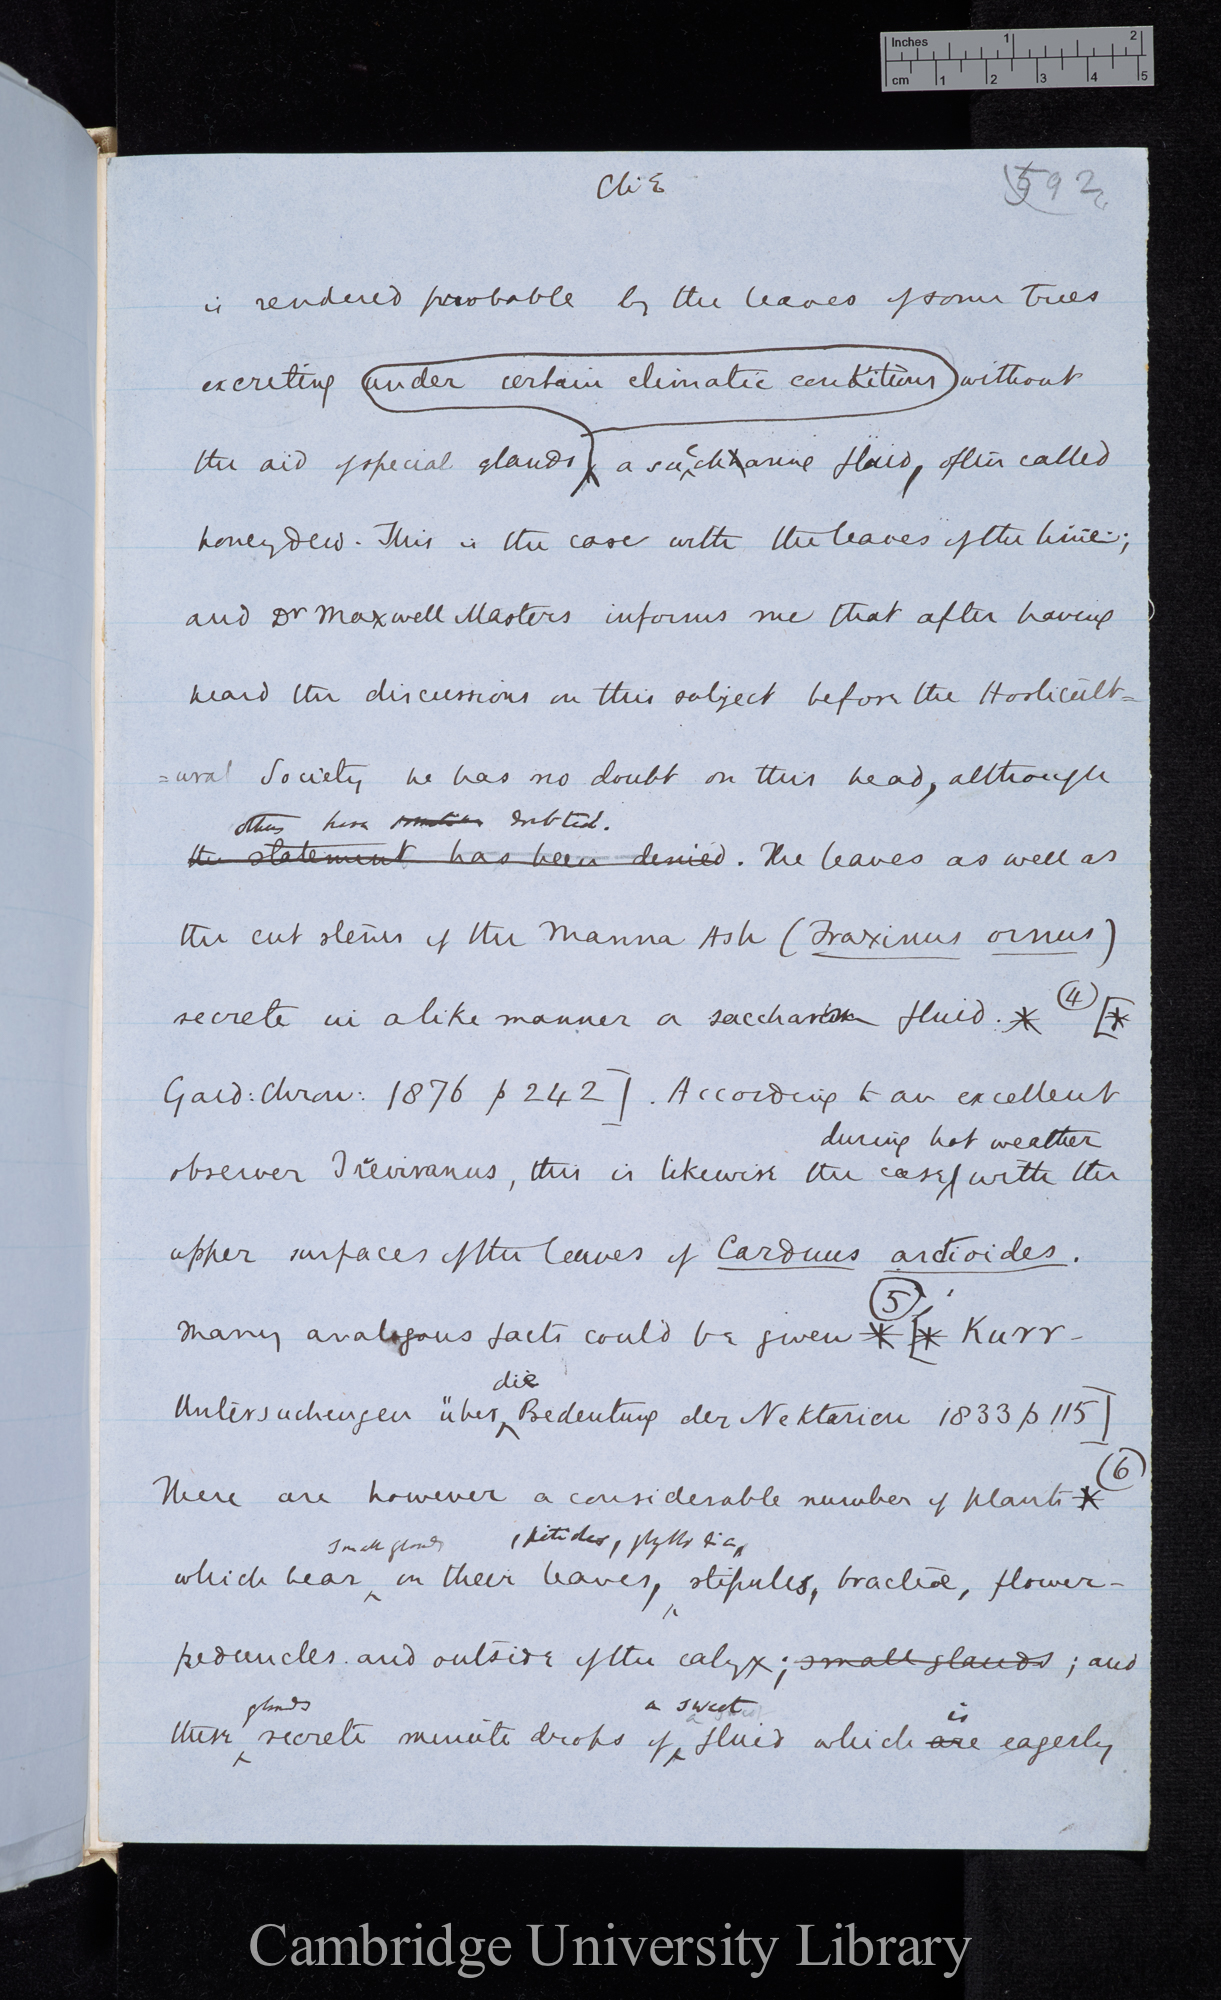 Inches 1 2
cm 1 2 3 4 5
592
is rendered probable by the leaves of some trees
excreting under certain climatic conditions without
the aid of special glands, a saccharine fluid, often called
honeydew. This is the case with the leaves of the lime;
and Dr Maxwell Masters informs me that after having
heard the discussions on this subject before the Horticult=
=ural Society he has no doubt on this head, although
others have doubted.
the statement has been denied. The leaves as well as
the cut stems of the Manna Ash (Fraxinus ornus)
secrete in a like manner a saccharine fluid. * (4) [*
Gard: Chron: 1876 p 242]. According to an excellent
during hot weather
observer Treviranus, this is likewise the case with the
upper surfaces of the leaves of Carduus arctioides.
(5)
Many analogous facts could be given * [* Kurr-
die
Untersuchungen über Bedeutung der Nektarien 1833 p 115]
(6)
There are however a considerable number of plants *
small glands , petioles, phyllodia,
which bear on their leaves, stipules, bracteæ, flower-
peduncles and outside of the calyx; small glands ; and
glands a sweet is
these secrete minute drops of fluid which are eagerly
Cambridge University Library